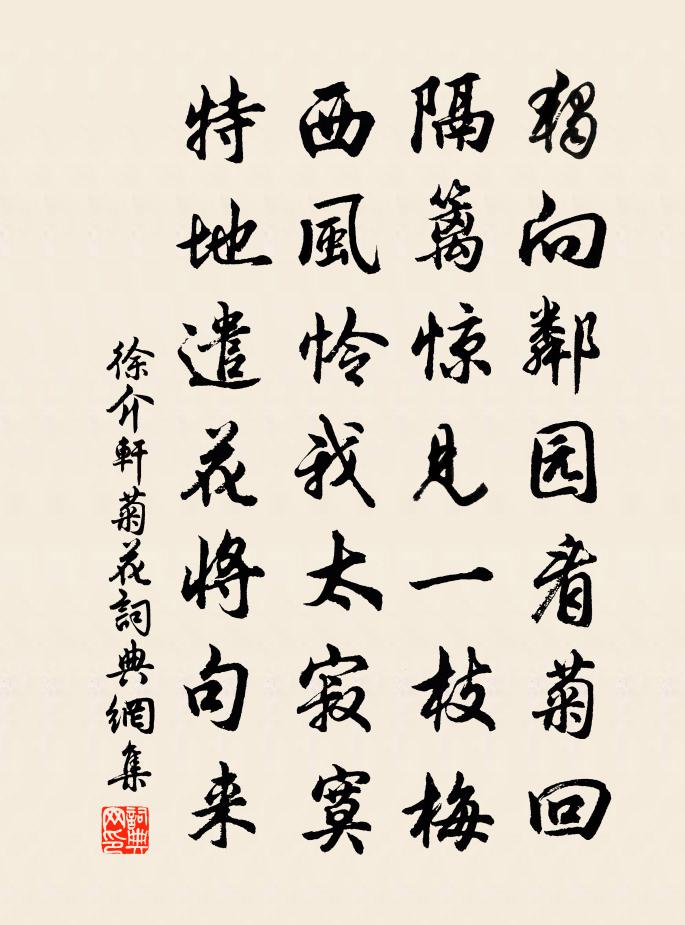 獨向鄰园看菊回
隔籬惊見一枝梅
西風怜我太寂寞
特地遣花將句来
徐介軒菊花詞典網集
詞典网印